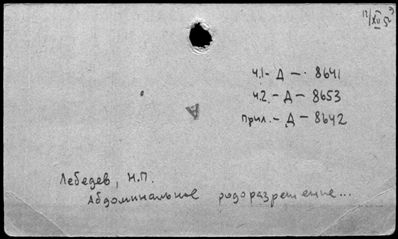 ч.1 - Д - 8641
ч.2. - Д - 8653
прил. - Д - 8642
Лебедев, Н.П.
Абдоминальное родоразрешение...